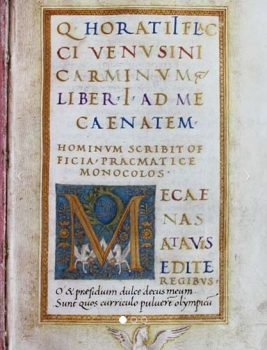 Q HORATII FLAC
CI VENUSINI
CARMINUM
LIBER · I · AD ME
CAENATEM ·
HOMINUM SCRIBIT OF
FICIA · PRACMATICE
MONOCOLOS ·
MECAE
NAS
ATAVIS
EDITE
REGIBUS
O & præsidium dulce decus meum
Sunt quos curriculo pulverẽ olympicũ